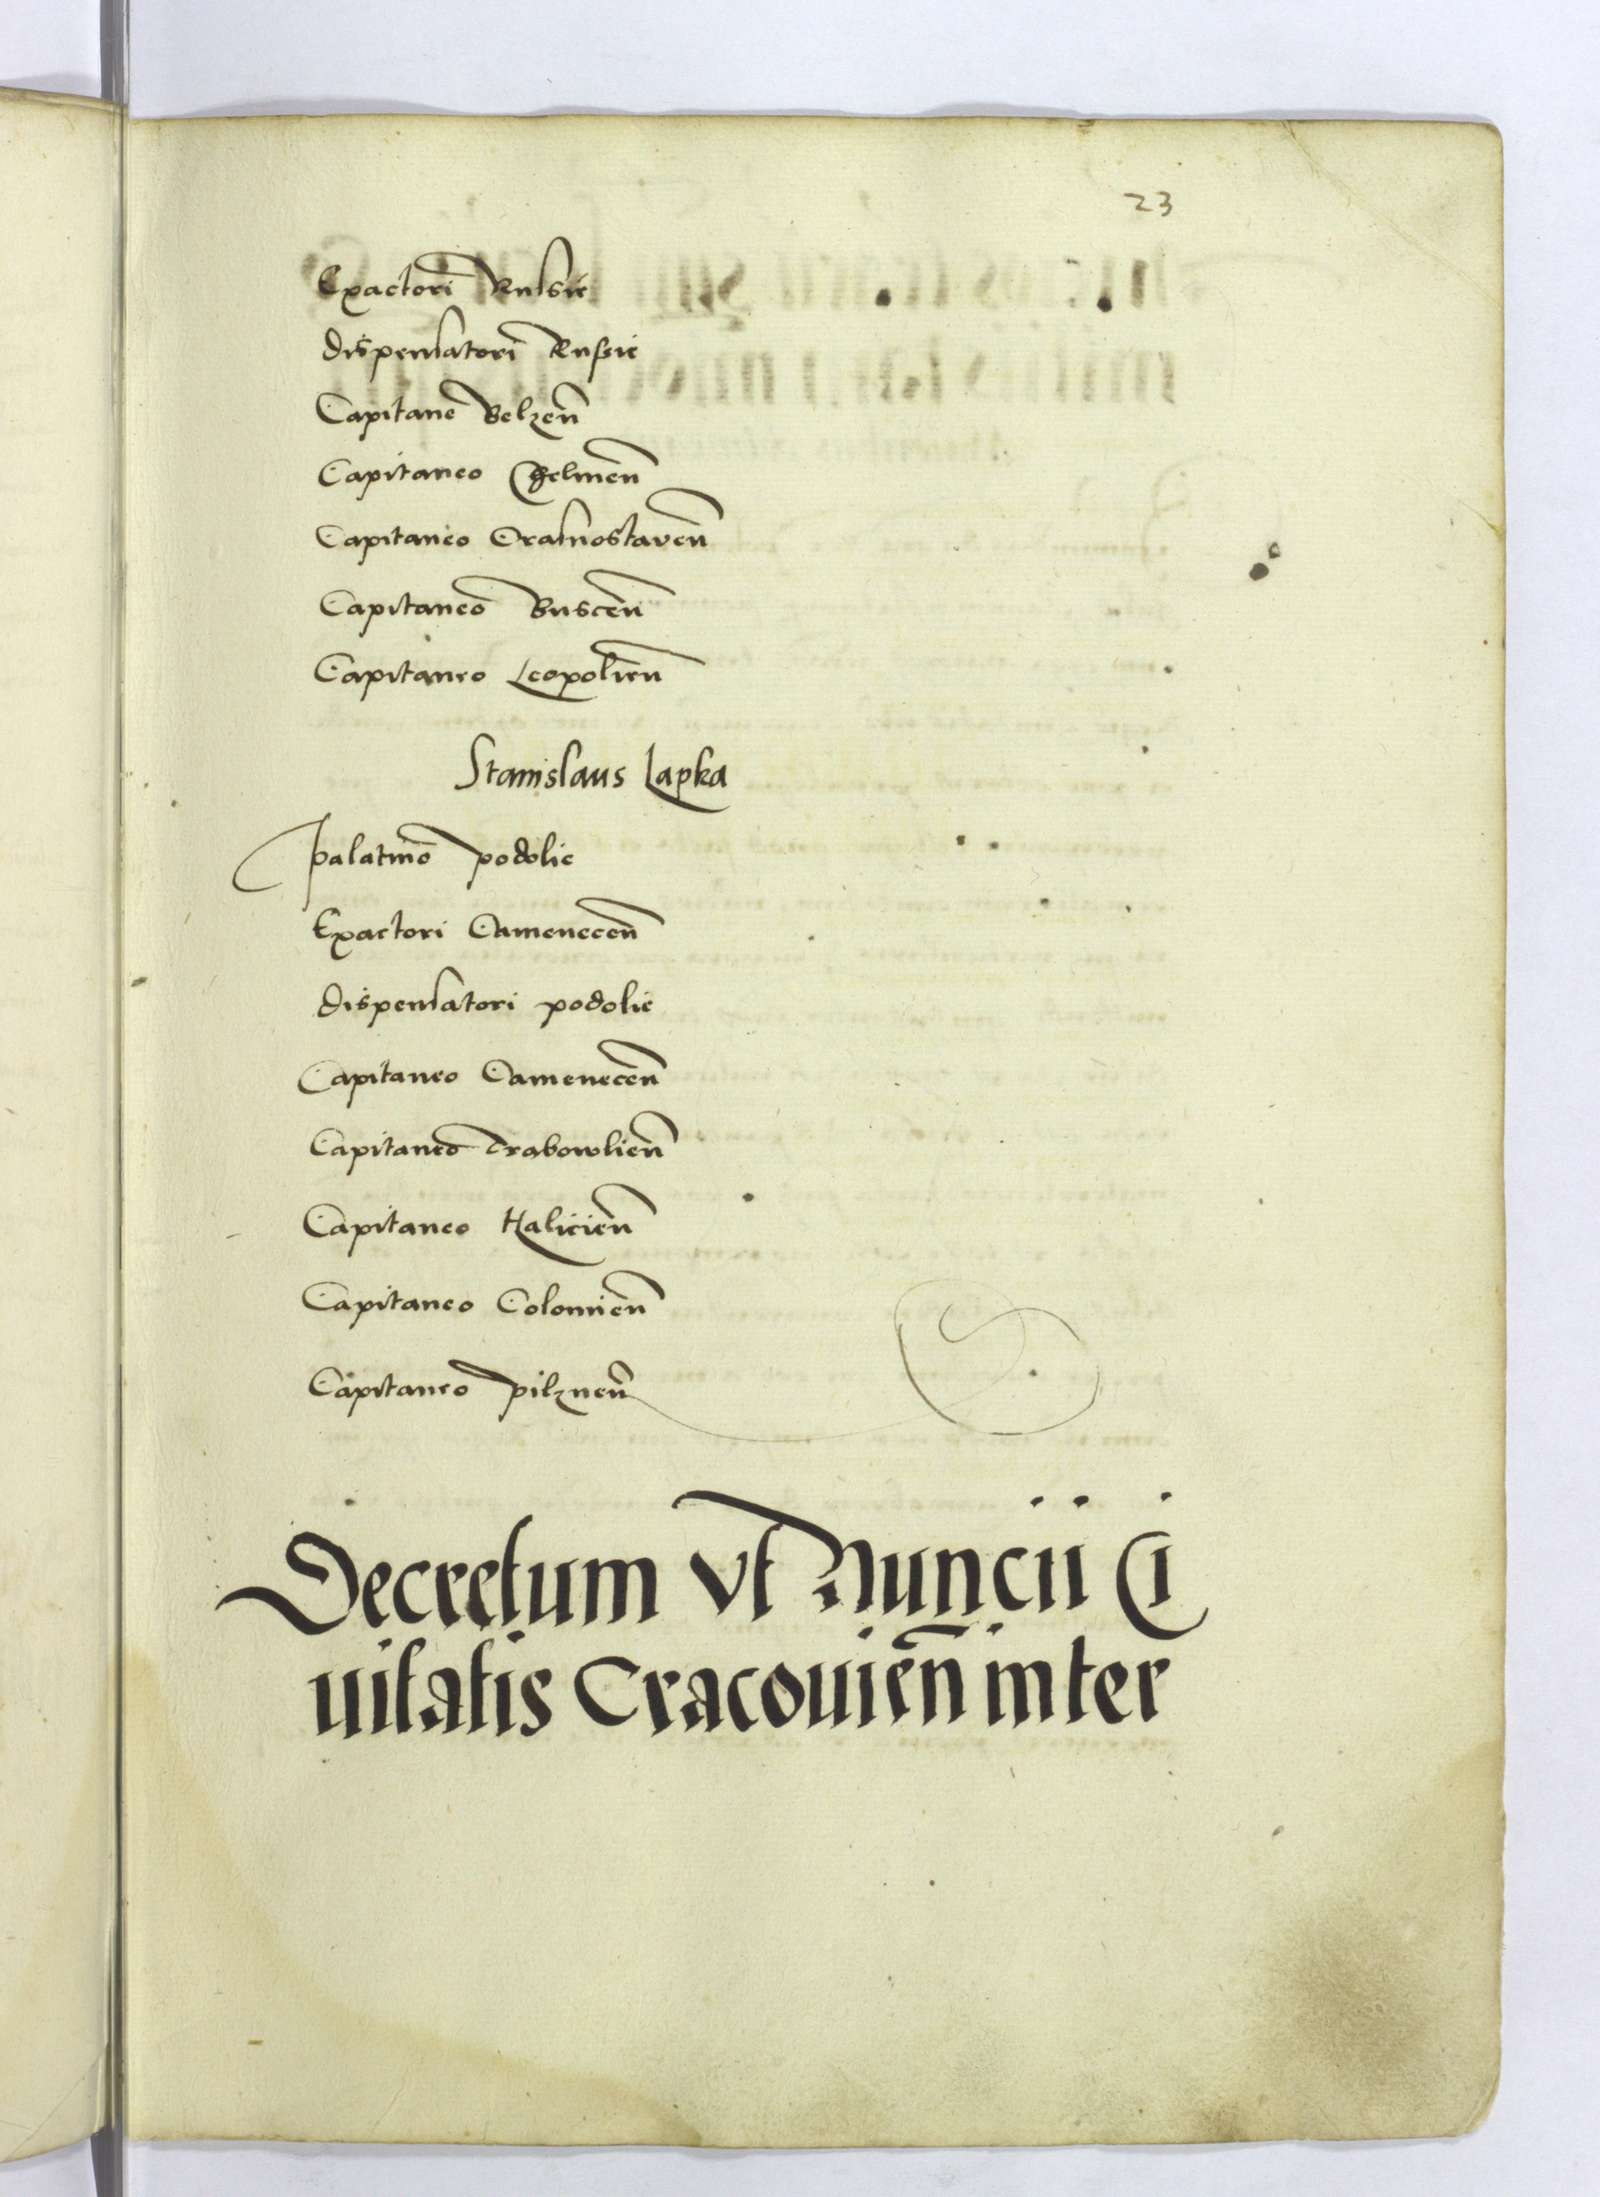 23
Exactori Russie
dispensatori Russie
Capitaneo Belzen̄
Capitaneo Chelmen̄
Capitaneo Crasnostaven̄
Capitaneo Buscen̄
Capitaneo Leopolien̄
Stanislaus Lapka
palatino podolie
Exactori Camenecen̄
dispensatori podolie
Capitaneo Camenecen̄
Capitaneo Trabowlien̄
Capitaneo Halicien̄
Capitaneo Colomien̄
Capitaneo pilznen̄
Decretum vt Nuncii Ci
uitatis Cracouien̄ inter